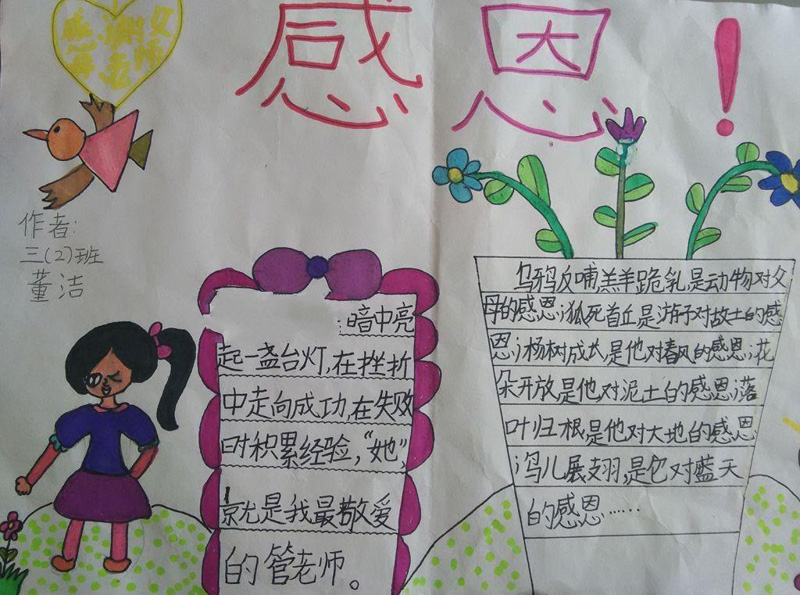 感谢父
母、老师
感恩!
作者:
三(2)班
董洁
:暗中亮
起一盏台灯,在挫折
中走向成功,在失败
时积累经验,“她”
就是我最敬爱
的管老师。
乌鸦反哺羔羊跪乳是动物对父
母的感恩;狐死首丘是游子对故土的感
恩;杨树成长是他对春风的感恩;花
朵开放是他对泥土的感恩落
叶归根是他对大地的感恩
鸟儿展翅,是它对蓝天
的感恩……